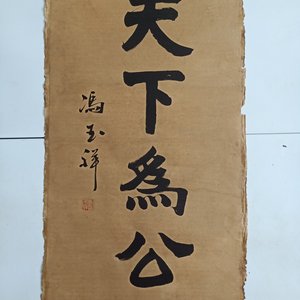 天下為公
馮玉祥